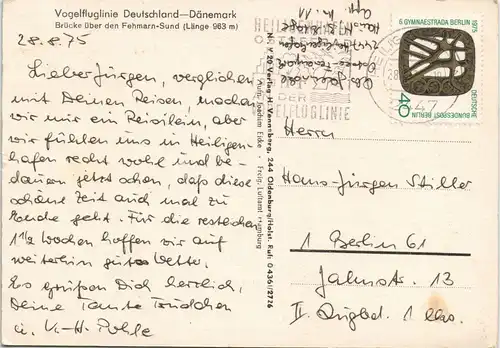 Vogelfluglinie Deutschland—Dänemark
Brücke über den Fehmarn-Sund (Länge 963 m)
28.8.75
Lieber Jürgen, verglichen
mit Deinen Reisen, machen
wir nur ein Reislein, aber
wir fühlen uns in Heiligen-
hafen recht wohl und be-
dauern jetzt schon, daß diese
schöne Zeit auch mal zu
Ende geht. Für die restlichen
1 1/2 Wochen hoffen wir auf
weiterhin gutes Wetter.
Es grüßen Dich herzlich,
Deine Tante Trudchen
u. K.-H. Pohle
Verlag H. Vennsberg, 244 Oldenburg/Holst. Ruf: 04361/2776
Aufn. Joachim Eicke · Freig. Luftamt Hamburg
HEILIGENHAFEN
OSTSEE
AN
DER
VOGELFLUGLINIE
6 GYMNAESTRADA BERLIN 1975
DEUTSCHE BUNDESPOST BERLIN
40
Herrn
Hans-Jürgen Stiller
1 Berlin 61
Jahnstr. 13